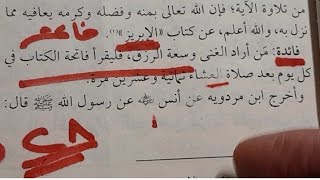 من تلاوة الآية؛ فإن الله تعالى بمنه وفضله وكرمه يعافيه مما
نزل به، والله أعلم، عن كتاب «الإبريز»(١).
فائدة: مَن أراد الغنى وسعة الرزق، فليقرأ فاتحة الكتاب في
كل يوم بعد صلاة العشاء ثمانية وعشرين مرة.
وأخرج ابن مردويه عن أنس ﷺ عن رسول الله ﷺ قال: